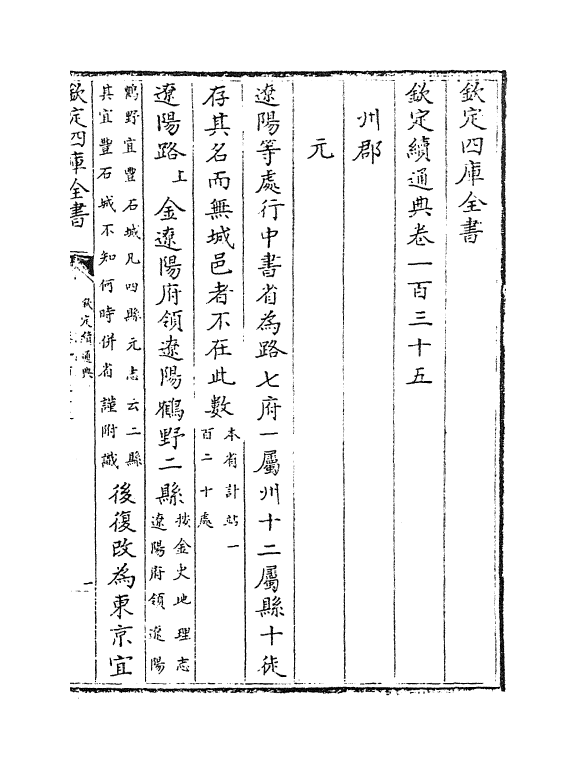 欽定四庫全書
欽定續通典卷一百三十五
州郡
元
遼陽等處行中書省為路七府一屬州十二屬縣十徒
存其名而無城邑者不在此數本省計站一
百二十處
遼陽路上金遼陽府領遼陽鶴野二縣按金史地理志
遼陽府領遼陽
鶴野宜豐石城凡四縣元志云二縣
其宜豐石城不知何時併省謹附識後復改為東京宜
欽定四庫全書
欽定續通典
一